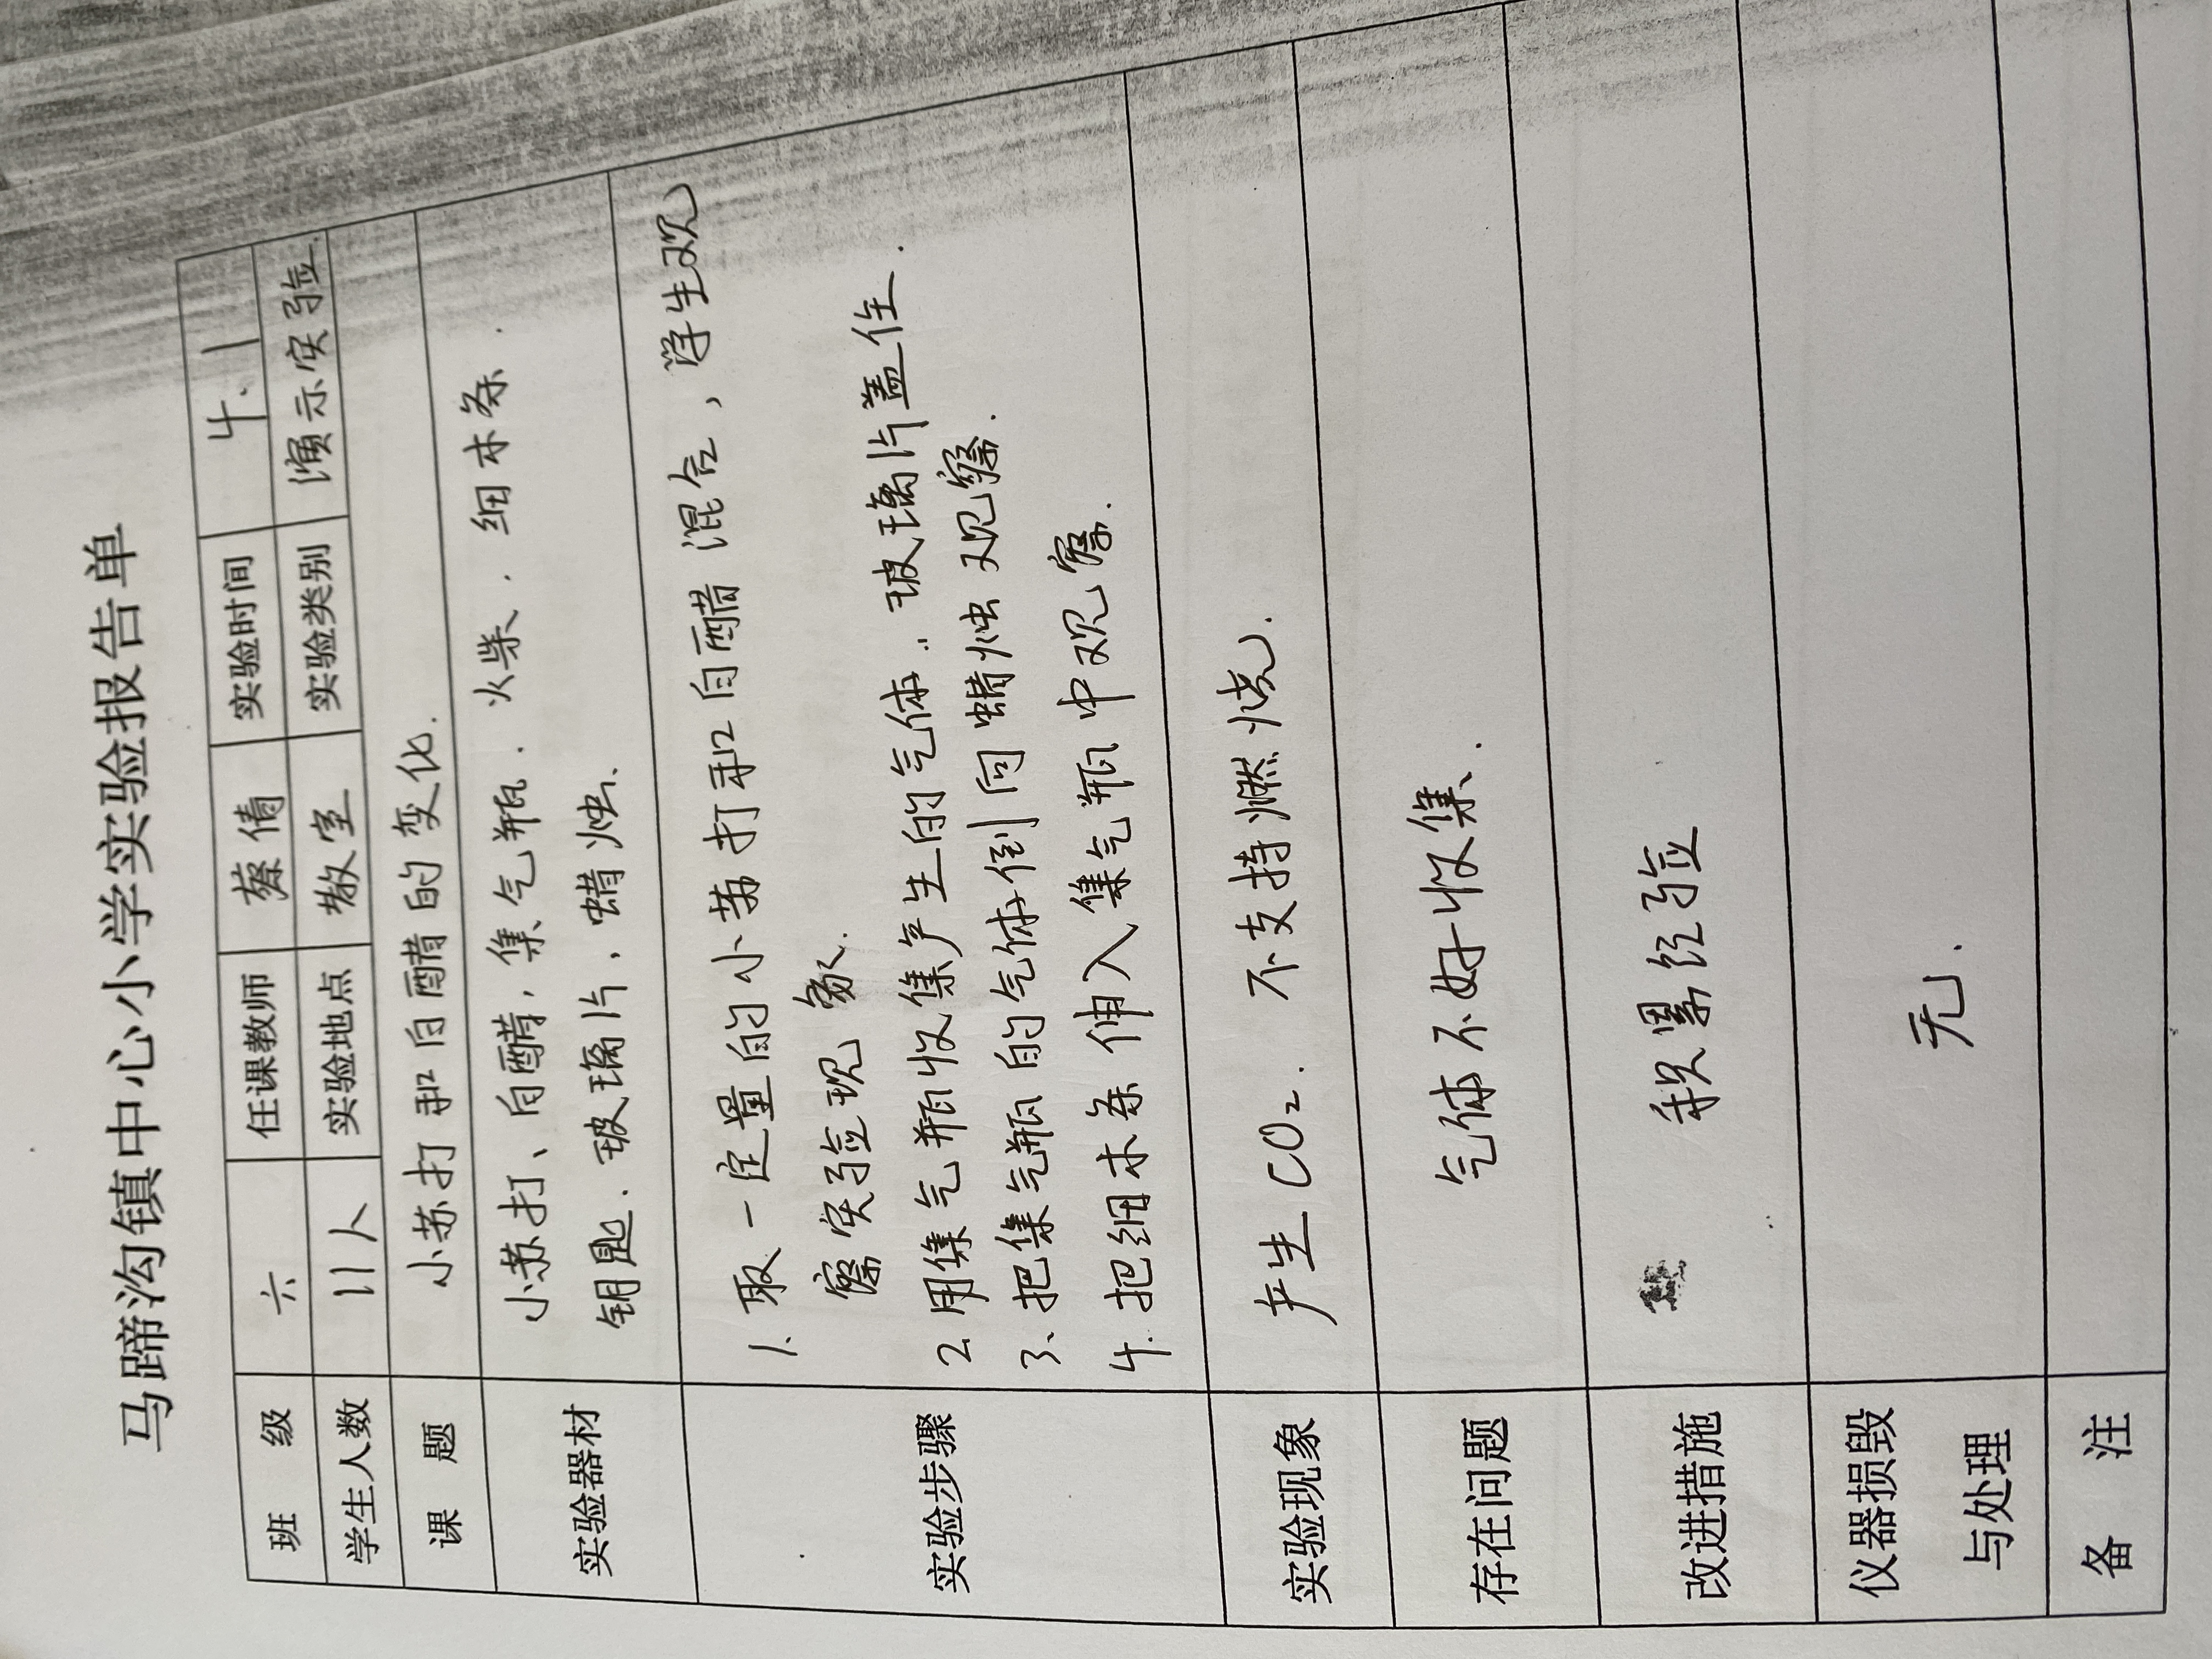 马蹄沟镇中心小学实验报告单
班 级 六 任课教师 蔡倩 实验时间 4.1
学生人数 11人 实验地点 教室 实验类别 演示实验.
课 题 小苏打和白醋的变化.
实验器材 小苏打、白醋, 集气瓶. 火柴. 细木条.
钥匙. 玻璃片. 蜡烛.
实验步骤 1. 取一定量的小苏打和白醋混合, 学生观
察实验现象.
2 用集气瓶收集产生的气体.. 玻璃片盖住.
3、把集气瓶的气体倒向蜡烛观察.
4. 把细木条伸入集气瓶中观察.
实验现象 产生CO₂. 不支持燃烧.
存在问题 气体不好收集.
改进措施 积累经验
仪器损毁
与处理 无.
备 注